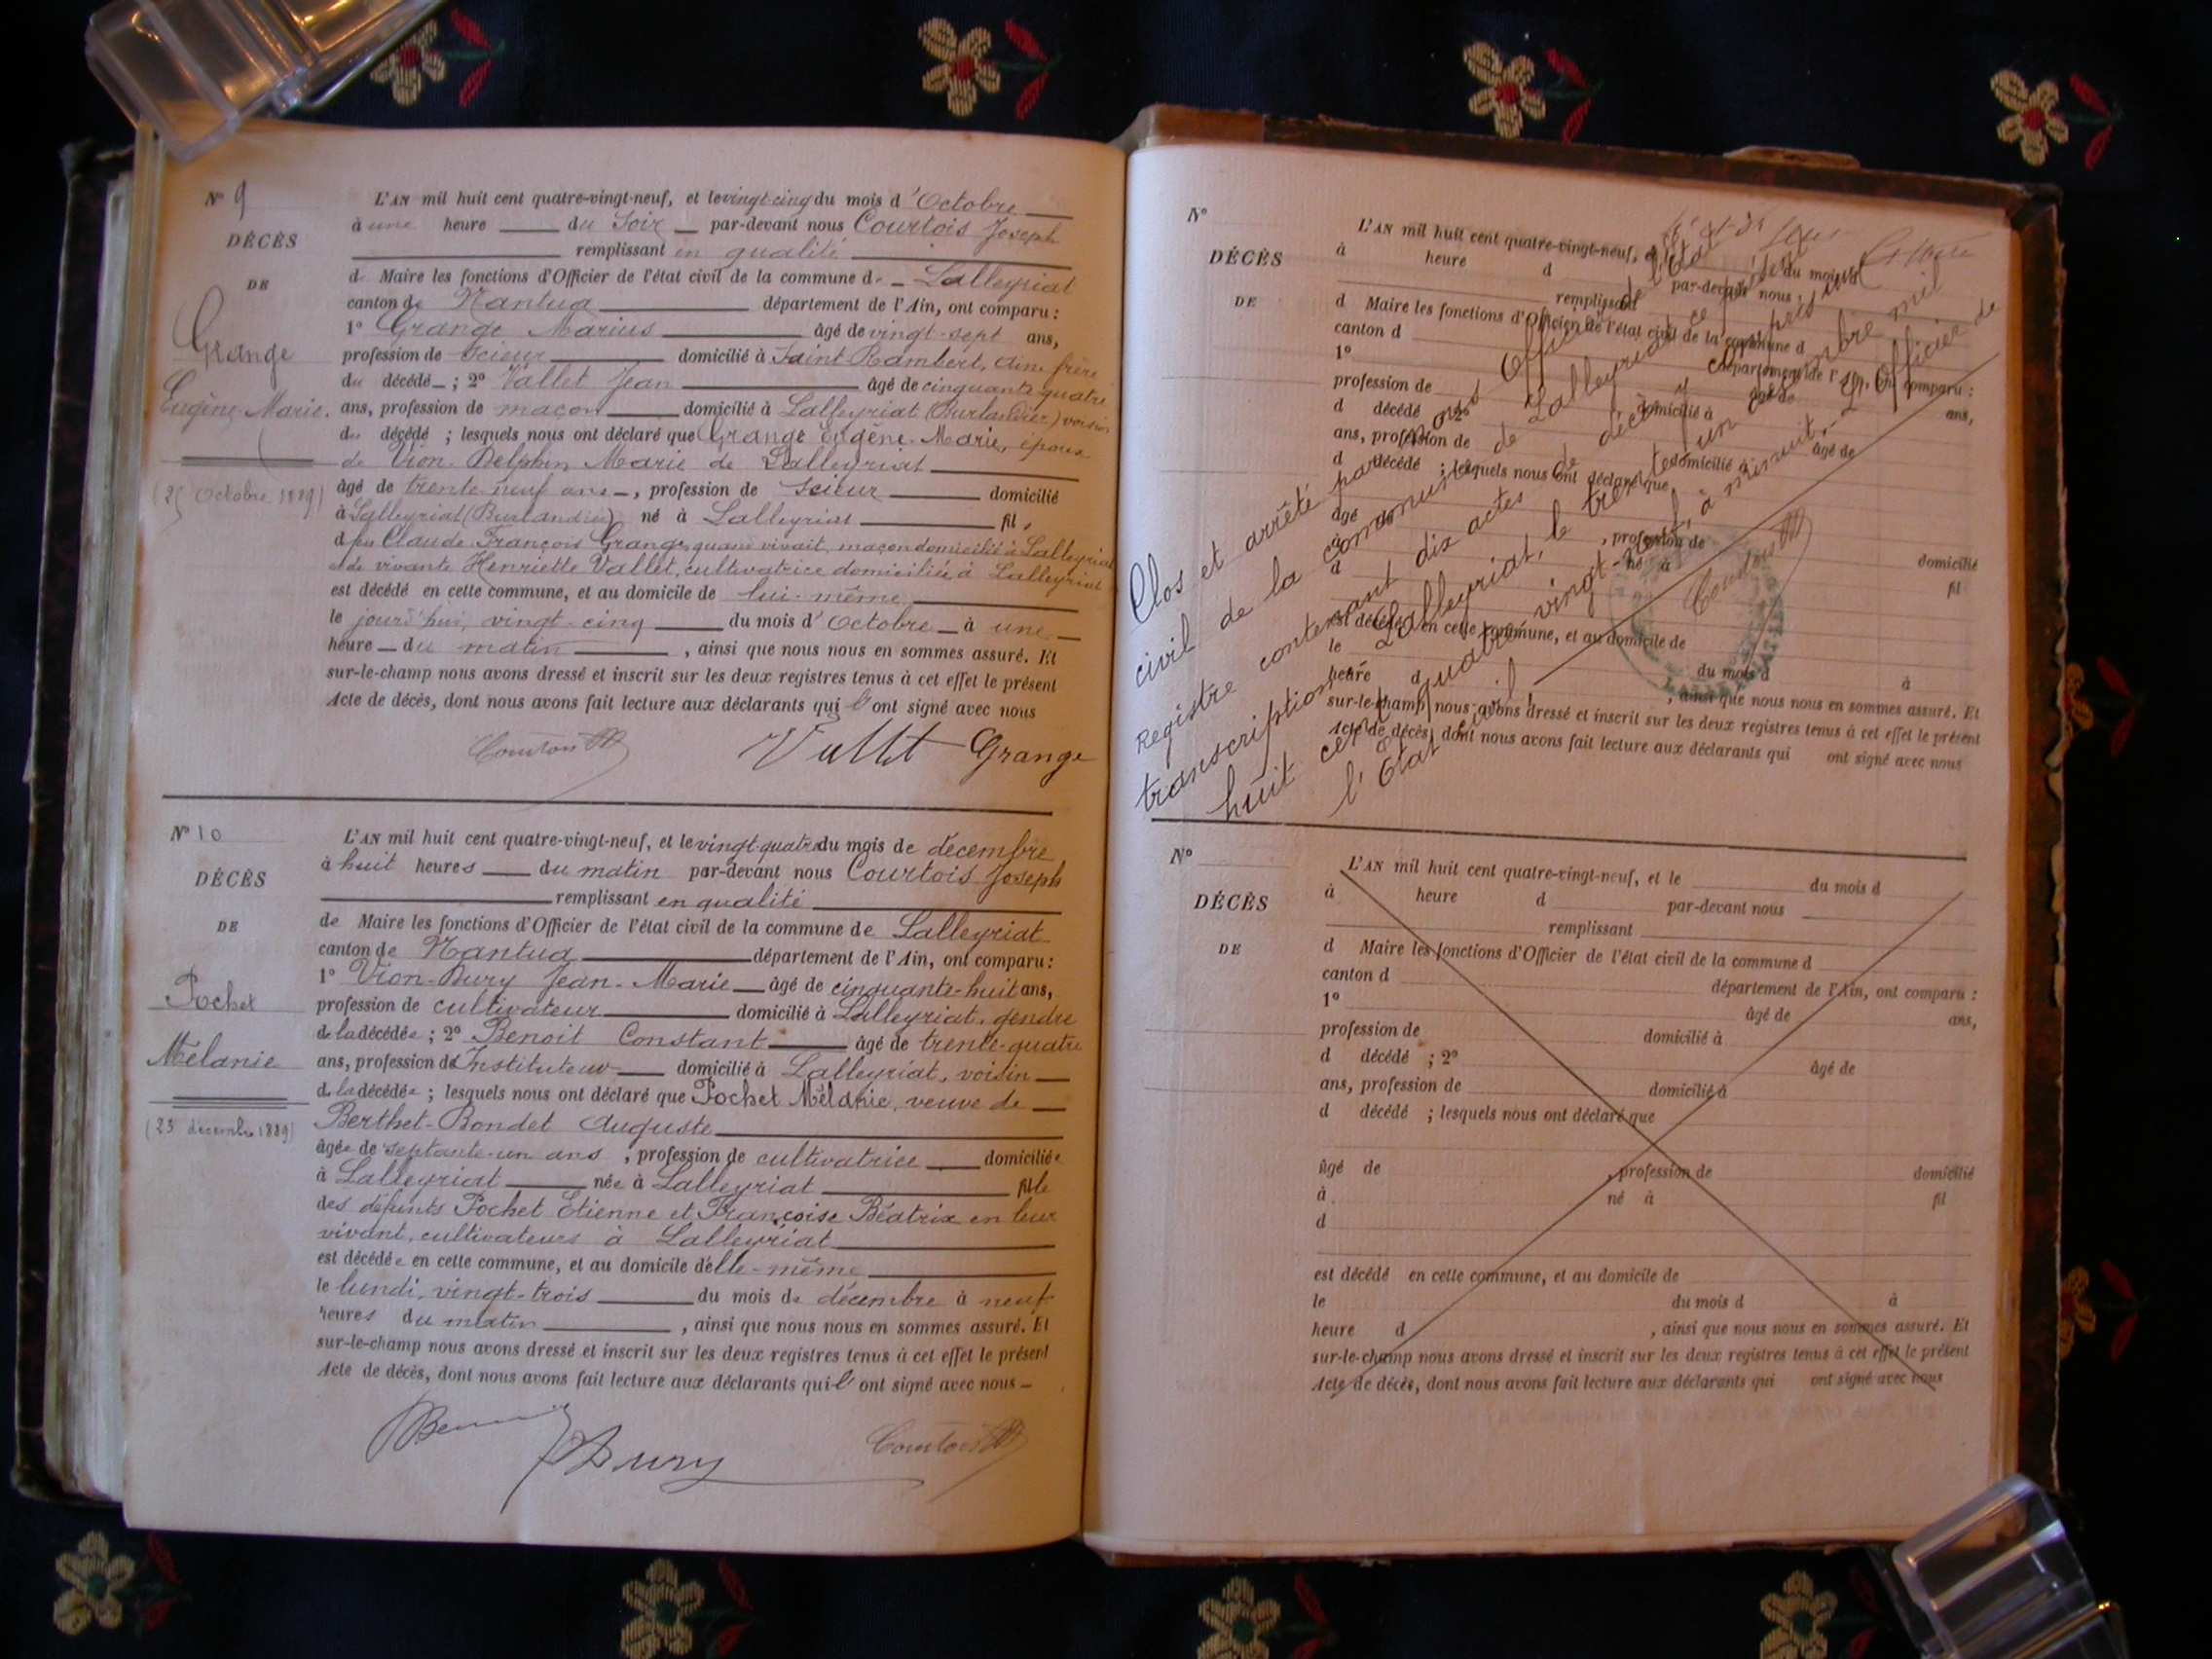 N° 9
DÉCÈS
DE
Grange
Eugène Marie.
(25 Octobre 1889)
L'AN mil huit cent quatre-vingt-neuf, et le vingt-cinq du mois d'Octobre
à une heure du Soir par-devant nous Courtois Joseph
remplissant en qualité
d Maire les fonctions d'Officier de l'état civil de la commune de Lalleyriat
canton de Nantua département de l'Ain, ont comparu :
1° Grange Marius âgé de vingt-sept ans,
profession de scieur domicilié à Saint Rambert, Ain, frère
du décédé ; 2° Vallet Jean âgé de cinquante quatre
ans, profession de maçon domicilié à Lalleyriat (Burlandier) voisin
du décédé ; lesquels nous ont déclaré que Grange Eugène-Marie, époux
de Vion-Delphin Marie de Lalleyriat
âgé de trente neuf ans, profession de scieur domicilié
à Lalleyriat (Burlandier) né à Lalleyriat fils
d feu Claude François Grange, quand vivait, maçon domicilié à Lalleyriat
et de vivante Henriette Vallet, cultivatrice domiciliée à Lalleyriat
est décédé en cette commune, et au domicile de lui-même
le jourd'hui, vingt-cinq du mois d'Octobre à une
heure du matin, ainsi que nous nous en sommes assuré. Et
sur-le-champ nous avons dressé et inscrit sur les deux registres tenus à cet effet le présent
Acte de décès, dont nous avons fait lecture aux déclarants qui l'ont signé avec nous
Courtois Vallet Grange
N° 10
DÉCÈS
DE
Pochet
Mélanie
(23 décembre 1889)
L'AN mil huit cent quatre-vingt-neuf, et le vingt-quatre du mois de décembre
à huit heures du matin par-devant nous Courtois Joseph
remplissant en qualité
de Maire les fonctions d'Officier de l'état civil de la commune de Lalleyriat
canton de Nantua département de l'Ain, ont comparu :
1° Vion-Dury Jean-Marie âgé de cinquante-huit ans,
profession de cultivateur domicilié à Lalleyriat, gendre
de la décédée ; 2° Benoit Constant âgé de trente-quatre
ans, profession d'Instituteur domicilié à Lalleyriat, voisin
de la décédée ; lesquels nous ont déclaré que Pochet Mélanie, veuve de
Berthet-Bondet Auguste
âgée de septante-un ans, profession de cultivatrice domiciliée
à Lalleyriat née à Lalleyriat fille
des défunts Pochet Etienne et Françoise Béatrix en leur
vivant, cultivateurs à Lalleyriat
est décédée en cette commune, et au domicile d'elle-même
le lundi, vingt-trois du mois de décembre à neuf
heures du matin, ainsi que nous nous en sommes assuré. Et
sur-le-champ nous avons dressé et inscrit sur les deux registres tenus à cet effet le présent
Acte de décès, dont nous avons fait lecture aux déclarants qui l'ont signé avec nous
Dury Courtois
N°
DÉCÈS
DE
L'AN mil huit cent quatre-vingt-neuf, et le du mois d
à heure d par-devant nous
remplissant
d Maire les fonctions d'Officier de l'état civil de la commune d
canton d département de l'Ain, ont comparu :
1° âgé de ans,
profession de domicilié à
d décédé ; 2° âgé de
ans, profession de domicilié à
d décédé ; lesquels nous ont déclaré que
âgé de , profession de domicilié
à né à fil
d
est décédé en cette commune, et au domicile de
le du mois d à
heure d , ainsi que nous nous en sommes assuré. Et
sur-le-champ nous avons dressé et inscrit sur les deux registres tenus à cet effet le présent
Acte de décès, dont nous avons fait lecture aux déclarants qui ont signé avec nous
Clos et arrêté par nous Officier de l'Etat
civil de la Commune de Lalleyriat ce présent
Registre contenant dix actes de décès
transcription Lalleyriat, le trente un décembre mil
huit cent quatre vingt-neuf, à minuit. L'Officier de
l'Etat civil,
Courtois
N°
DÉCÈS
DE
L'AN mil huit cent quatre-vingt-neuf, et le du mois d
à heure d par-devant nous
remplissant
d Maire les fonctions d'Officier de l'état civil de la commune d
canton d département de l'Ain, ont comparu :
1° âgé de ans,
profession de domicilié à
d décédé ; 2° âgé de
ans, profession de domicilié à
d décédé ; lesquels nous ont déclaré que
âgé de , profession de domicilié
à né à fil
d
est décédé en cette commune, et au domicile de
le du mois d à
heure d , ainsi que nous nous en sommes assuré. Et
sur-le-champ nous avons dressé et inscrit sur les deux registres tenus à cet effet le présent
Acte de décès, dont nous avons fait lecture aux déclarants qui ont signé avec nous